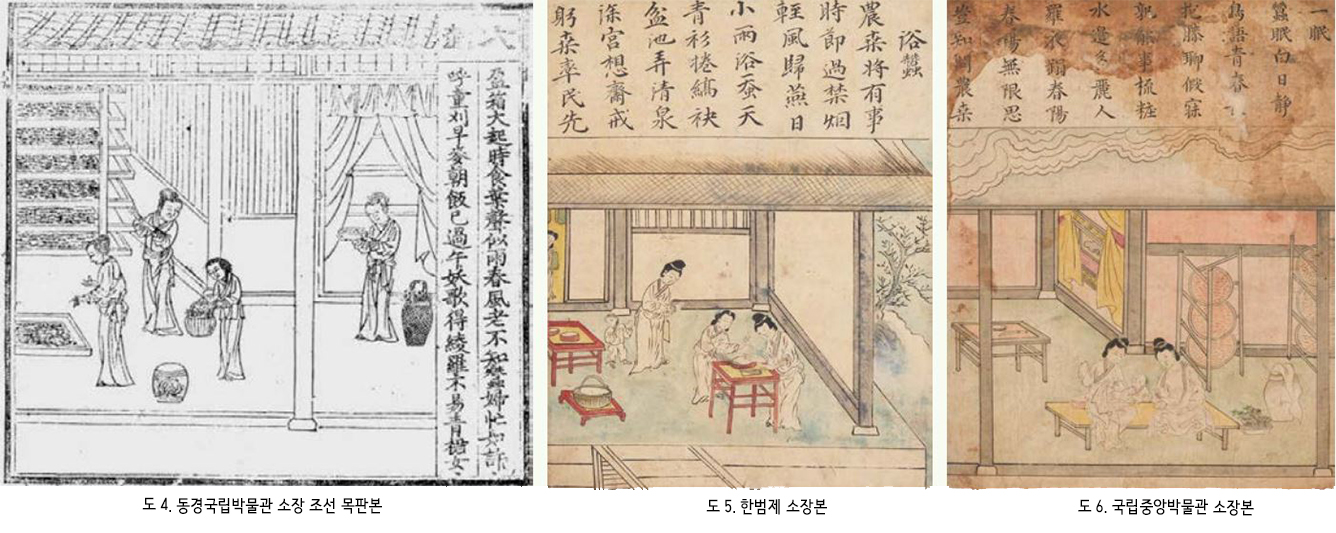 大
盈箱大起時食葉聲似雨春風老不知蠶婦忙如許
呼童刈早麥朝飯已過午妖歌得綾羅不易青裙女
浴蠶
農桑將有事
時節過禁烟
輕風歸燕日
小雨浴蚕天
青衫捲縞袂
盆池弄清泉
深宮想齋戒
躬桑率民先
一眠
蠶眠白日靜
鳥語青春
抱膝聊假寐
孰能事梳粧
水邊多麗人
羅衣蹋春陽
春陽無限思
豈知問農桑
도 4. 동경국립박물관 소장 조선 목판본
도 5. 한범제 소장본
도 6. 국립중앙박물관 소장본